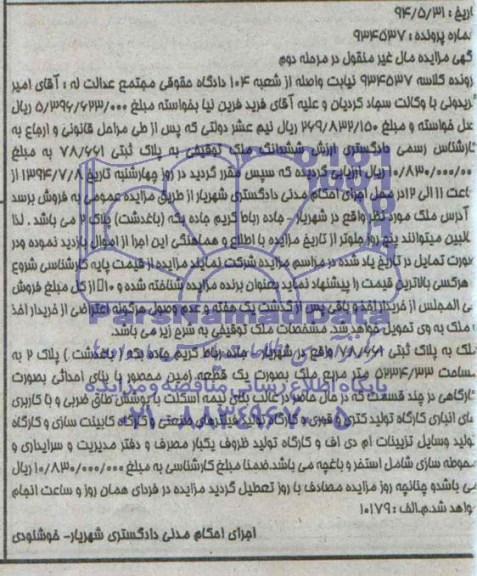 تاریخ : ۹۴/۵/۳۱
شماره پرونده : ۹۳۴۵۳۷
گهی مزایده مال غیر منقول در مرحله دوم
رونده کلاسه ۹۳۴۵۳۷ نیابت واصله از شعبه ۱۰۴ دادگاه حقوقی مجتمع عدالت له : آقای امیر
ریدونی با وکالت سجاد کردیان و علیه آقای فرید فرین نیا بخواسته مبلغ ۵/۳۹۶/۶۲۳/۰۰۰ ریال
صل خواسته و مبلغ ۲۶۹/۸۳۲/۱۵۰ ریال نیم عشر دولتی که پس از طی مراحل قانونی و ارجاع به
کارشناس رسمی دادگستری ارزش ششدانگ ملک توقیفی به پلاک ثبتی ۷۸/۶۶۱ به مبلغ
۱۰/۸۳۰/۰۰۰/۰۰ ریال ارزیابی گردیده که سپس مقرر گردید در روز چهارشنبه تاریخ ۱۳۹۴/۷/۸ از
ساعت ۱۱ الی ۱۲ در محل اجرای احکام مدنی دادگستری شهریار از طریق مزایده عمومی به فروش برسد
آدرس ملک مورد نظر واقع در شهریار - جاده رباط کریم جاده بکه (باغدشت) پلاک ۲ می باشد . لذا
طالبین میتوانند پنج روز جلوتر از تاریخ مزایده با اطلاع و هماهنگی این اجرا از اموال بازدید نموده ودر
صورت تمایل در تاریخ یاد شده در مراسم مزایده شرکت نمایند مزایده از قیمت پایه کارشناسی شروع
هرکسی بالاترین قیمت را پیشنهاد نماید بعنوان برنده مزایده شناخته شده و ۱۰٪ از کل مبلغ فروش
ی المجلس از خریدار اخذ و باقی پس از گذشت یک هفته و عدم وصول هرگونه اعتراضی از خریدار اخذ
ملک به وی تحویل خواهد شد. مشخصات ملک توقیفی به شرح زیر می باشد.
ملک به پلاک ثبتی ۷۸/۶۶۱ واقع در شهریار - جاده رباط کریم جاده بکه ( باغدشت ) پلاک ۲ به
مساحت ۵۲۳۴/۳۳ متر مربع ملک بصورت یک قطعه زمین محصور با بنای احداثی بصورت
کارگاهی در چند قسمت که در حال حاضر در غالب بنای نیمه اسکلت با پوشش طاق ضربی و با کاربری
های انباری کارگاه تولید کتری و قوری و کارگاه تولید فیلترهای صنعتی و کارگاه کابینت سازی و کارگاه
تولید وسایل تزیینات ام دی اف و کارگاه تولید ظروف یکبار مصرف و دفتر مدیریت و سرایداری و
محوطه سازی شامل استخر و باغچه می باشد.ضمنا مبلغ کارشناسی به مبلغ ۱۰/۸۳۰/۰۰۰/۰۰۰ ریال
می باشدو چنانچه روز مزایده مصادف با روز تعطیل گردید مزایده در فردای همان روز و ساعت انجام
خواهد شد.م.الف : ۱۰۱۷۹
اجرای احکام مدنی دادگستری شهریار- خوشنودی
ParsNamadData
پایگاه اطلاع رسانی مناقصه و مزایده
۰۲۱-۸۸۳۴۹۶۷۰-۵